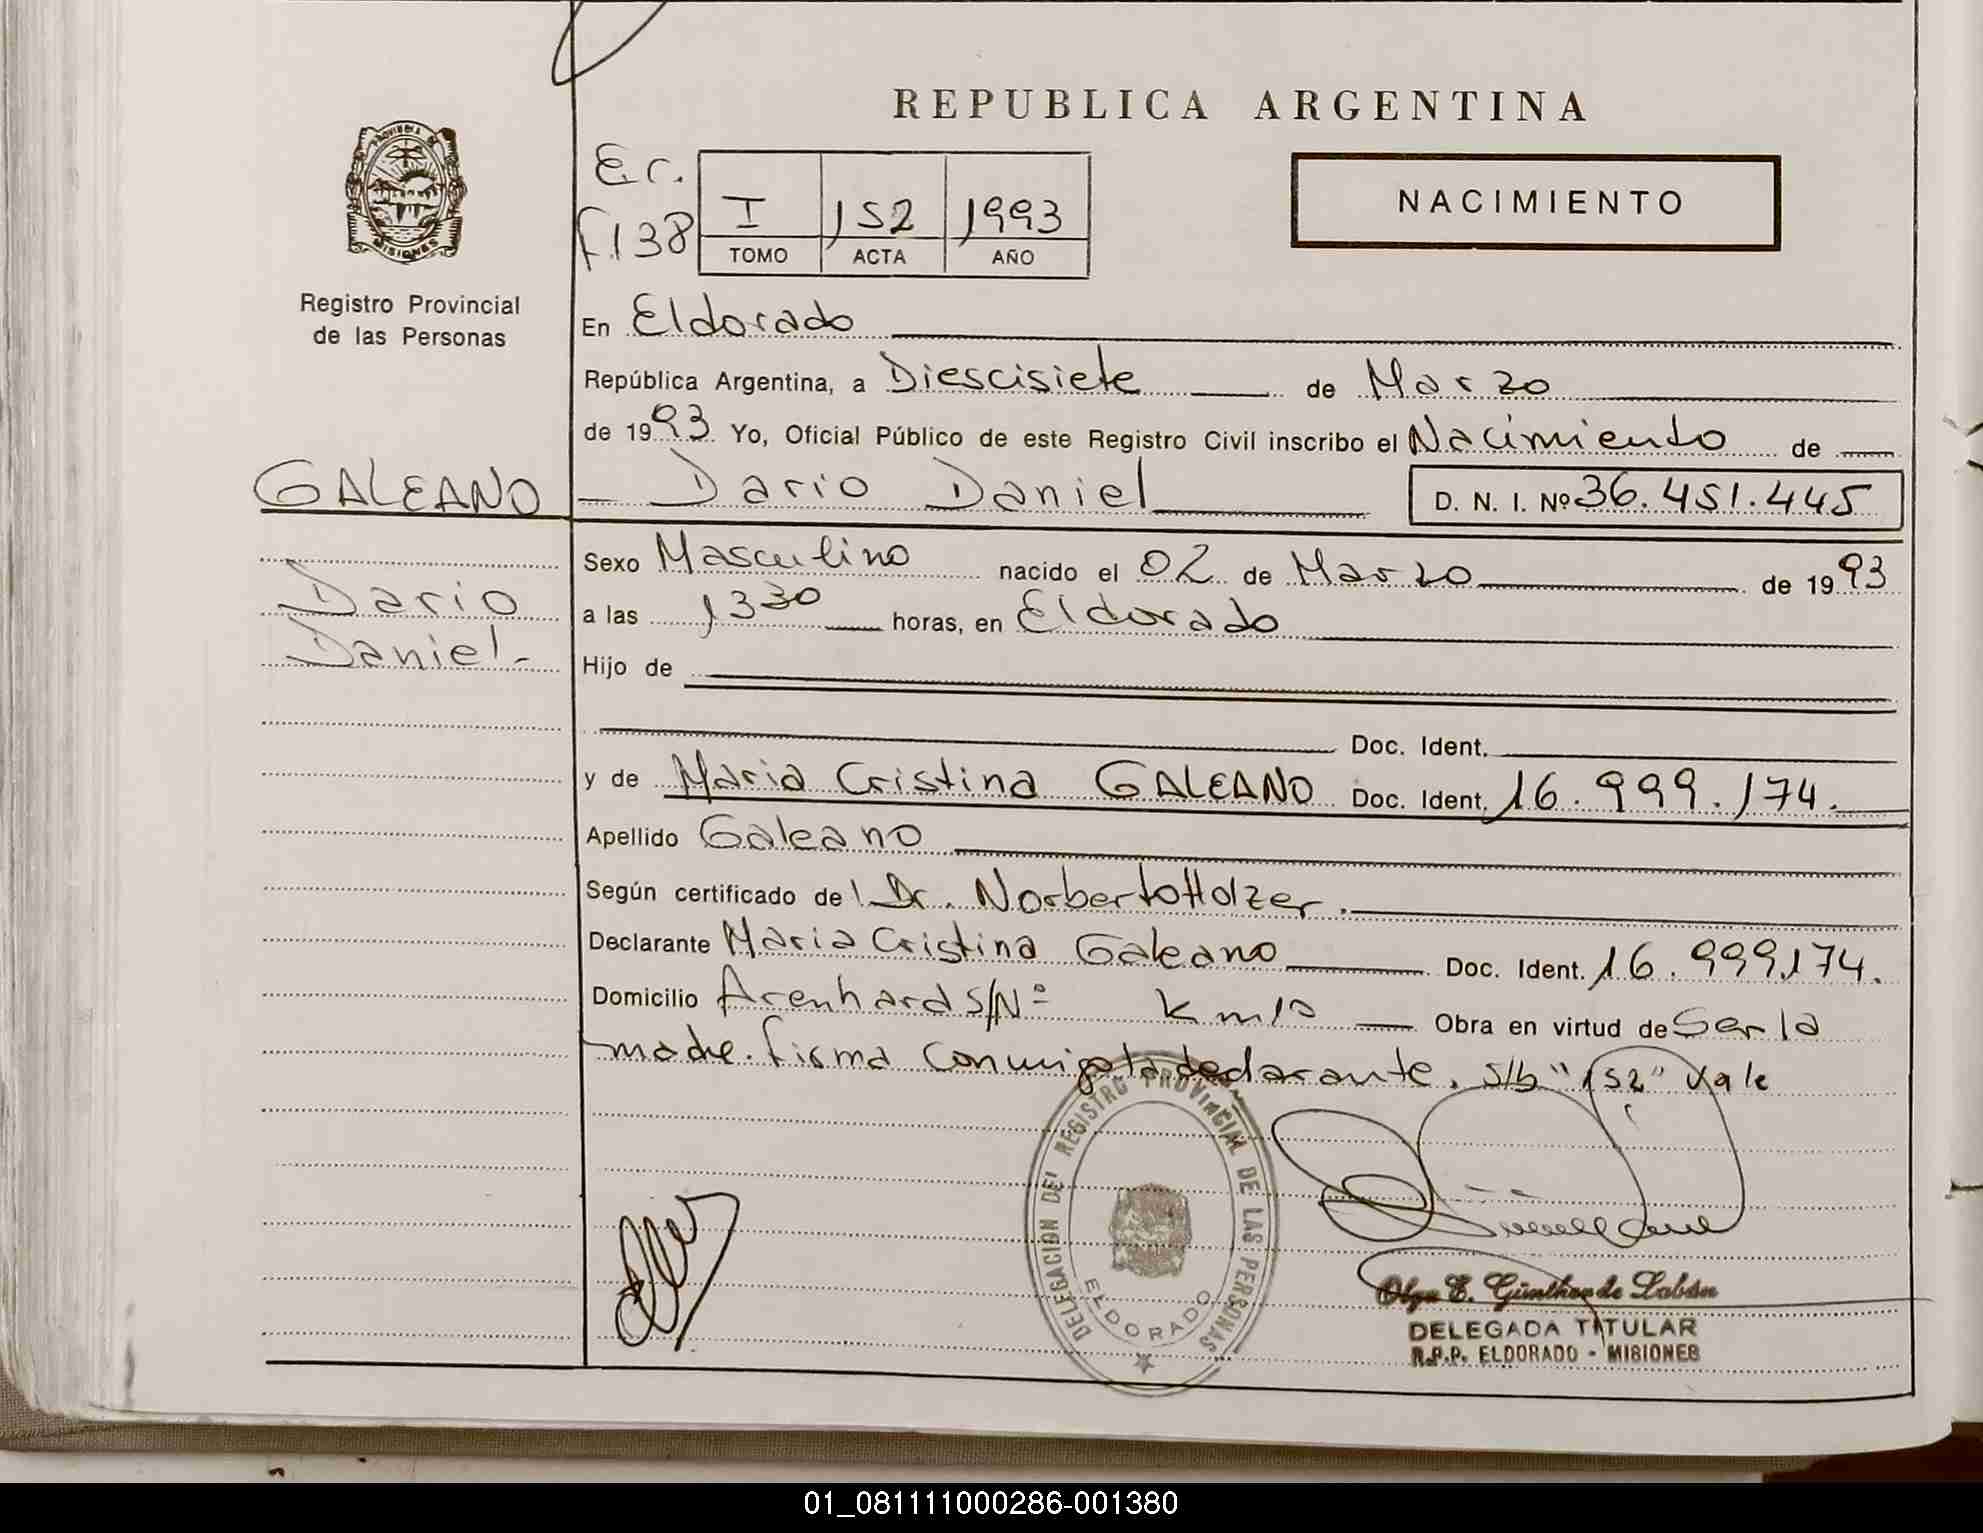 REPUBLICA ARGENTINA
PROVINCIA DE
MISIONES
Registro Provincial
de las Personas
Er.
F.138
I 152 1993
TOMO ACTA AÑO
NACIMIENTO
En Eldorado
República Argentina, a Diescisiete de Marzo
de 1993 Yo, Oficial Público de este Registro Civil inscribo el Nacimiento de
GALEANO
Dario Daniel D. N. I. Nº 36.451.445
Dario
Daniel.-
Sexo Masculino nacido el 02 de Marzo de 1993
a las 1330 horas, en Eldorado
Hijo de
Doc. Ident.
y de Maria Cristina GALEANO Doc. Ident. 16.999.174.
Apellido Galeano
Según certificado del Dr. Norberto Holzer.
Declarante Maria Cristina Galeano Doc. Ident. 16.999.174.
Domicilio Arenhard S/Nº Km 10 Obra en virtud de Ser la
madre. firma conmigo la declarante. s/b "152" Vale
DELEGACION DEL REGISTRO PROVINCIAL DE LAS PERSONAS
ELDORADO
Olga E. Günther de Labán
DELEGADA TITULAR
R.P.P. ELDORADO - MISIONES
01_081111000286-001380